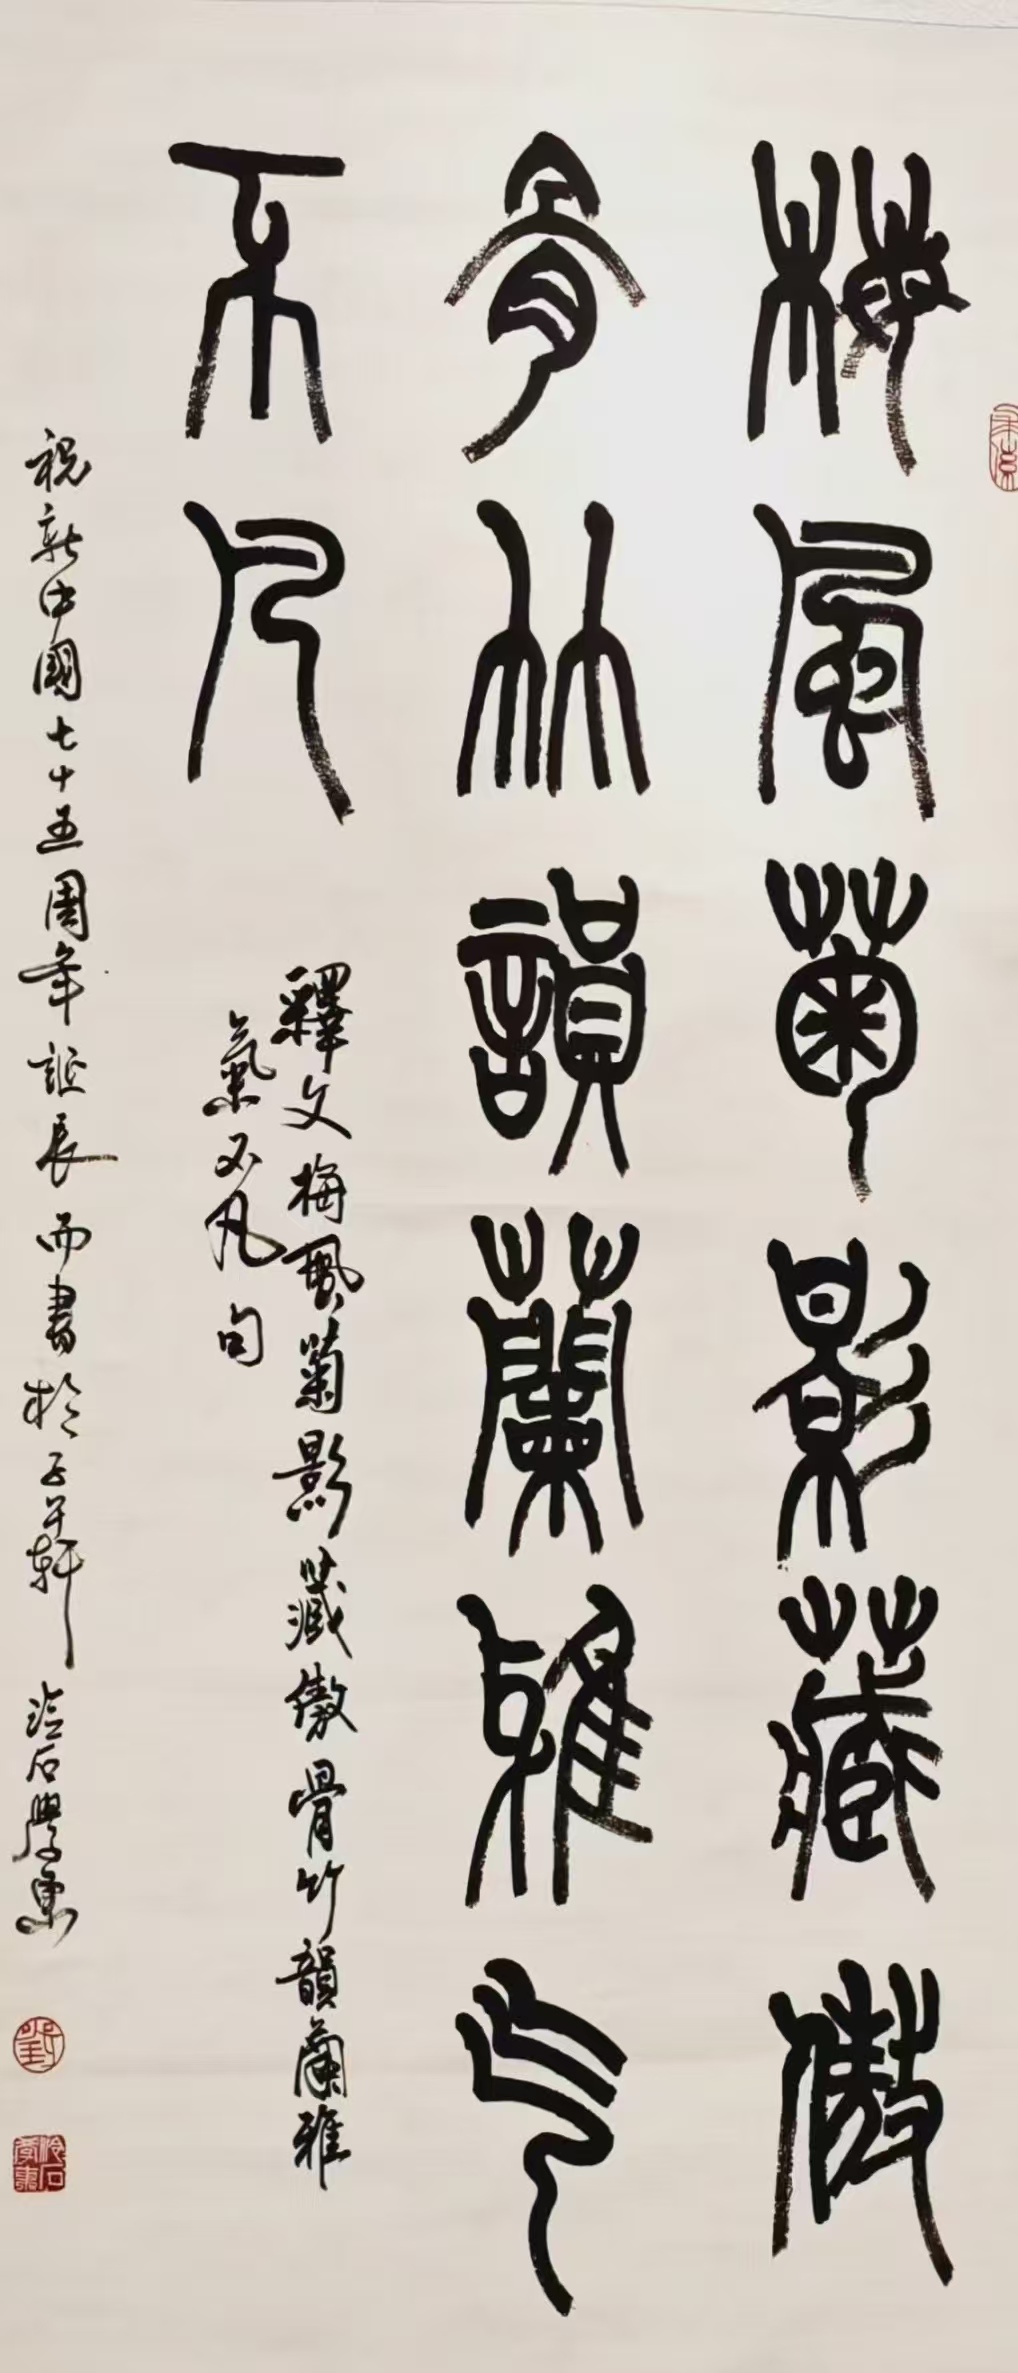 梅風菊影藏傲
骨竹韻蘭雅气
不凡
釋文梅風菊影藏傲骨竹韻蘭雅
氣不凡句
祝新中國七十五周年誕辰而書於子芊軒 冷石學東